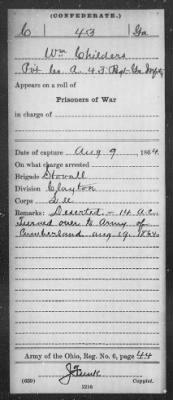 (CONFEDERATE.)
C 43 Ga
Wm Childers
Pvt Co. A. 43 Regt Ga Infty
Appears on a roll of
Prisoners of War
in charge of
Date of capture Aug 9, 1864
On what charge arrested
Brigade Stovall
Division Clayton
Corps Lee
Remarks: Deserted - 14 A.C.
Turned over to Army of
Cumberland Aug 19. 1864.
Army of the Ohio, Reg. No. 6, page 44
(639) J Funk
5216 Copyist.